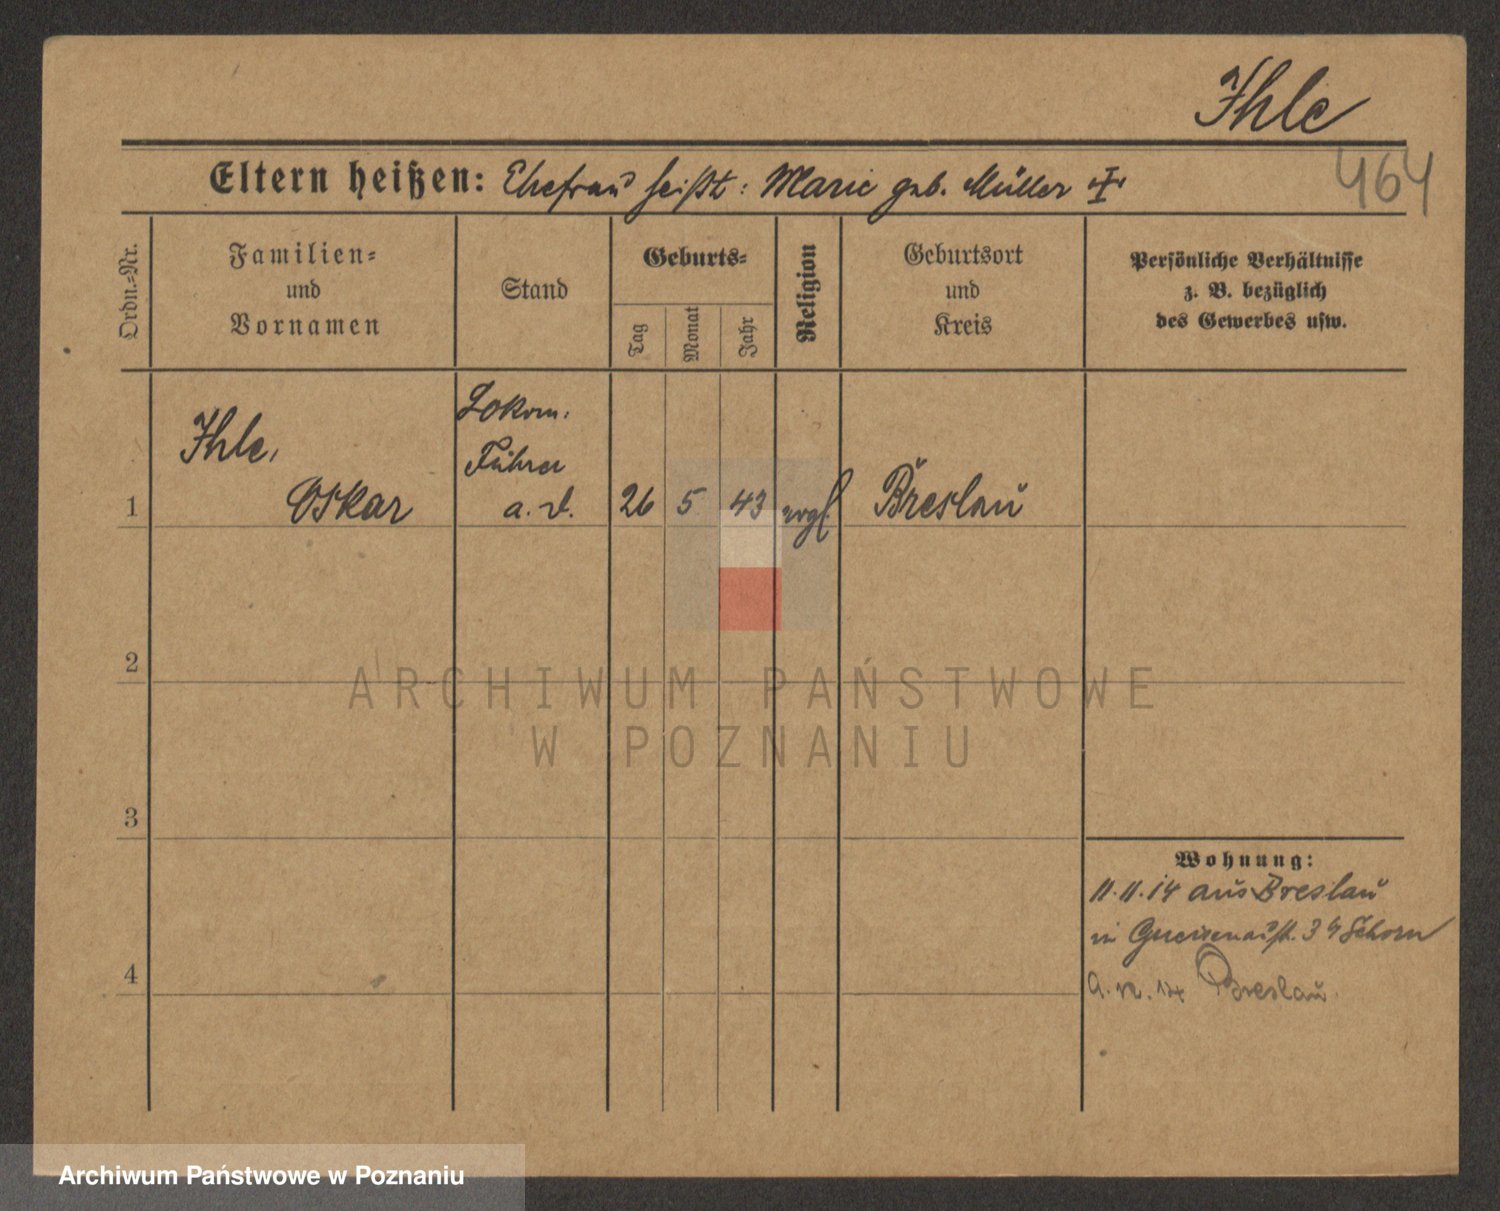 Ihle
464
Eltern heißen: Ehefrau heißt: Marie geb. Müller †
Ordn.=Nr.
Familien=
und
Vornamen
Stand
Geburts=
Tag
Monat
Jahr
Religion
Geburtsort
und
Kreis
Persönliche Verhältnisse
z. B. bezüglich
des Gewerbes usw.
1
Ihle,
Oskar
Lokom.
Führer
a. D.
26
5
43
evgl.
Breslau
2
3
4
Wohnung:
11.11.14 aus Breslau
in Gneisenaustr. 3 b/ Schorn
Breslau
ARCHIWUM PAŃSTWOWE
W POZNANIU
Archiwum Państwowe w Poznaniu